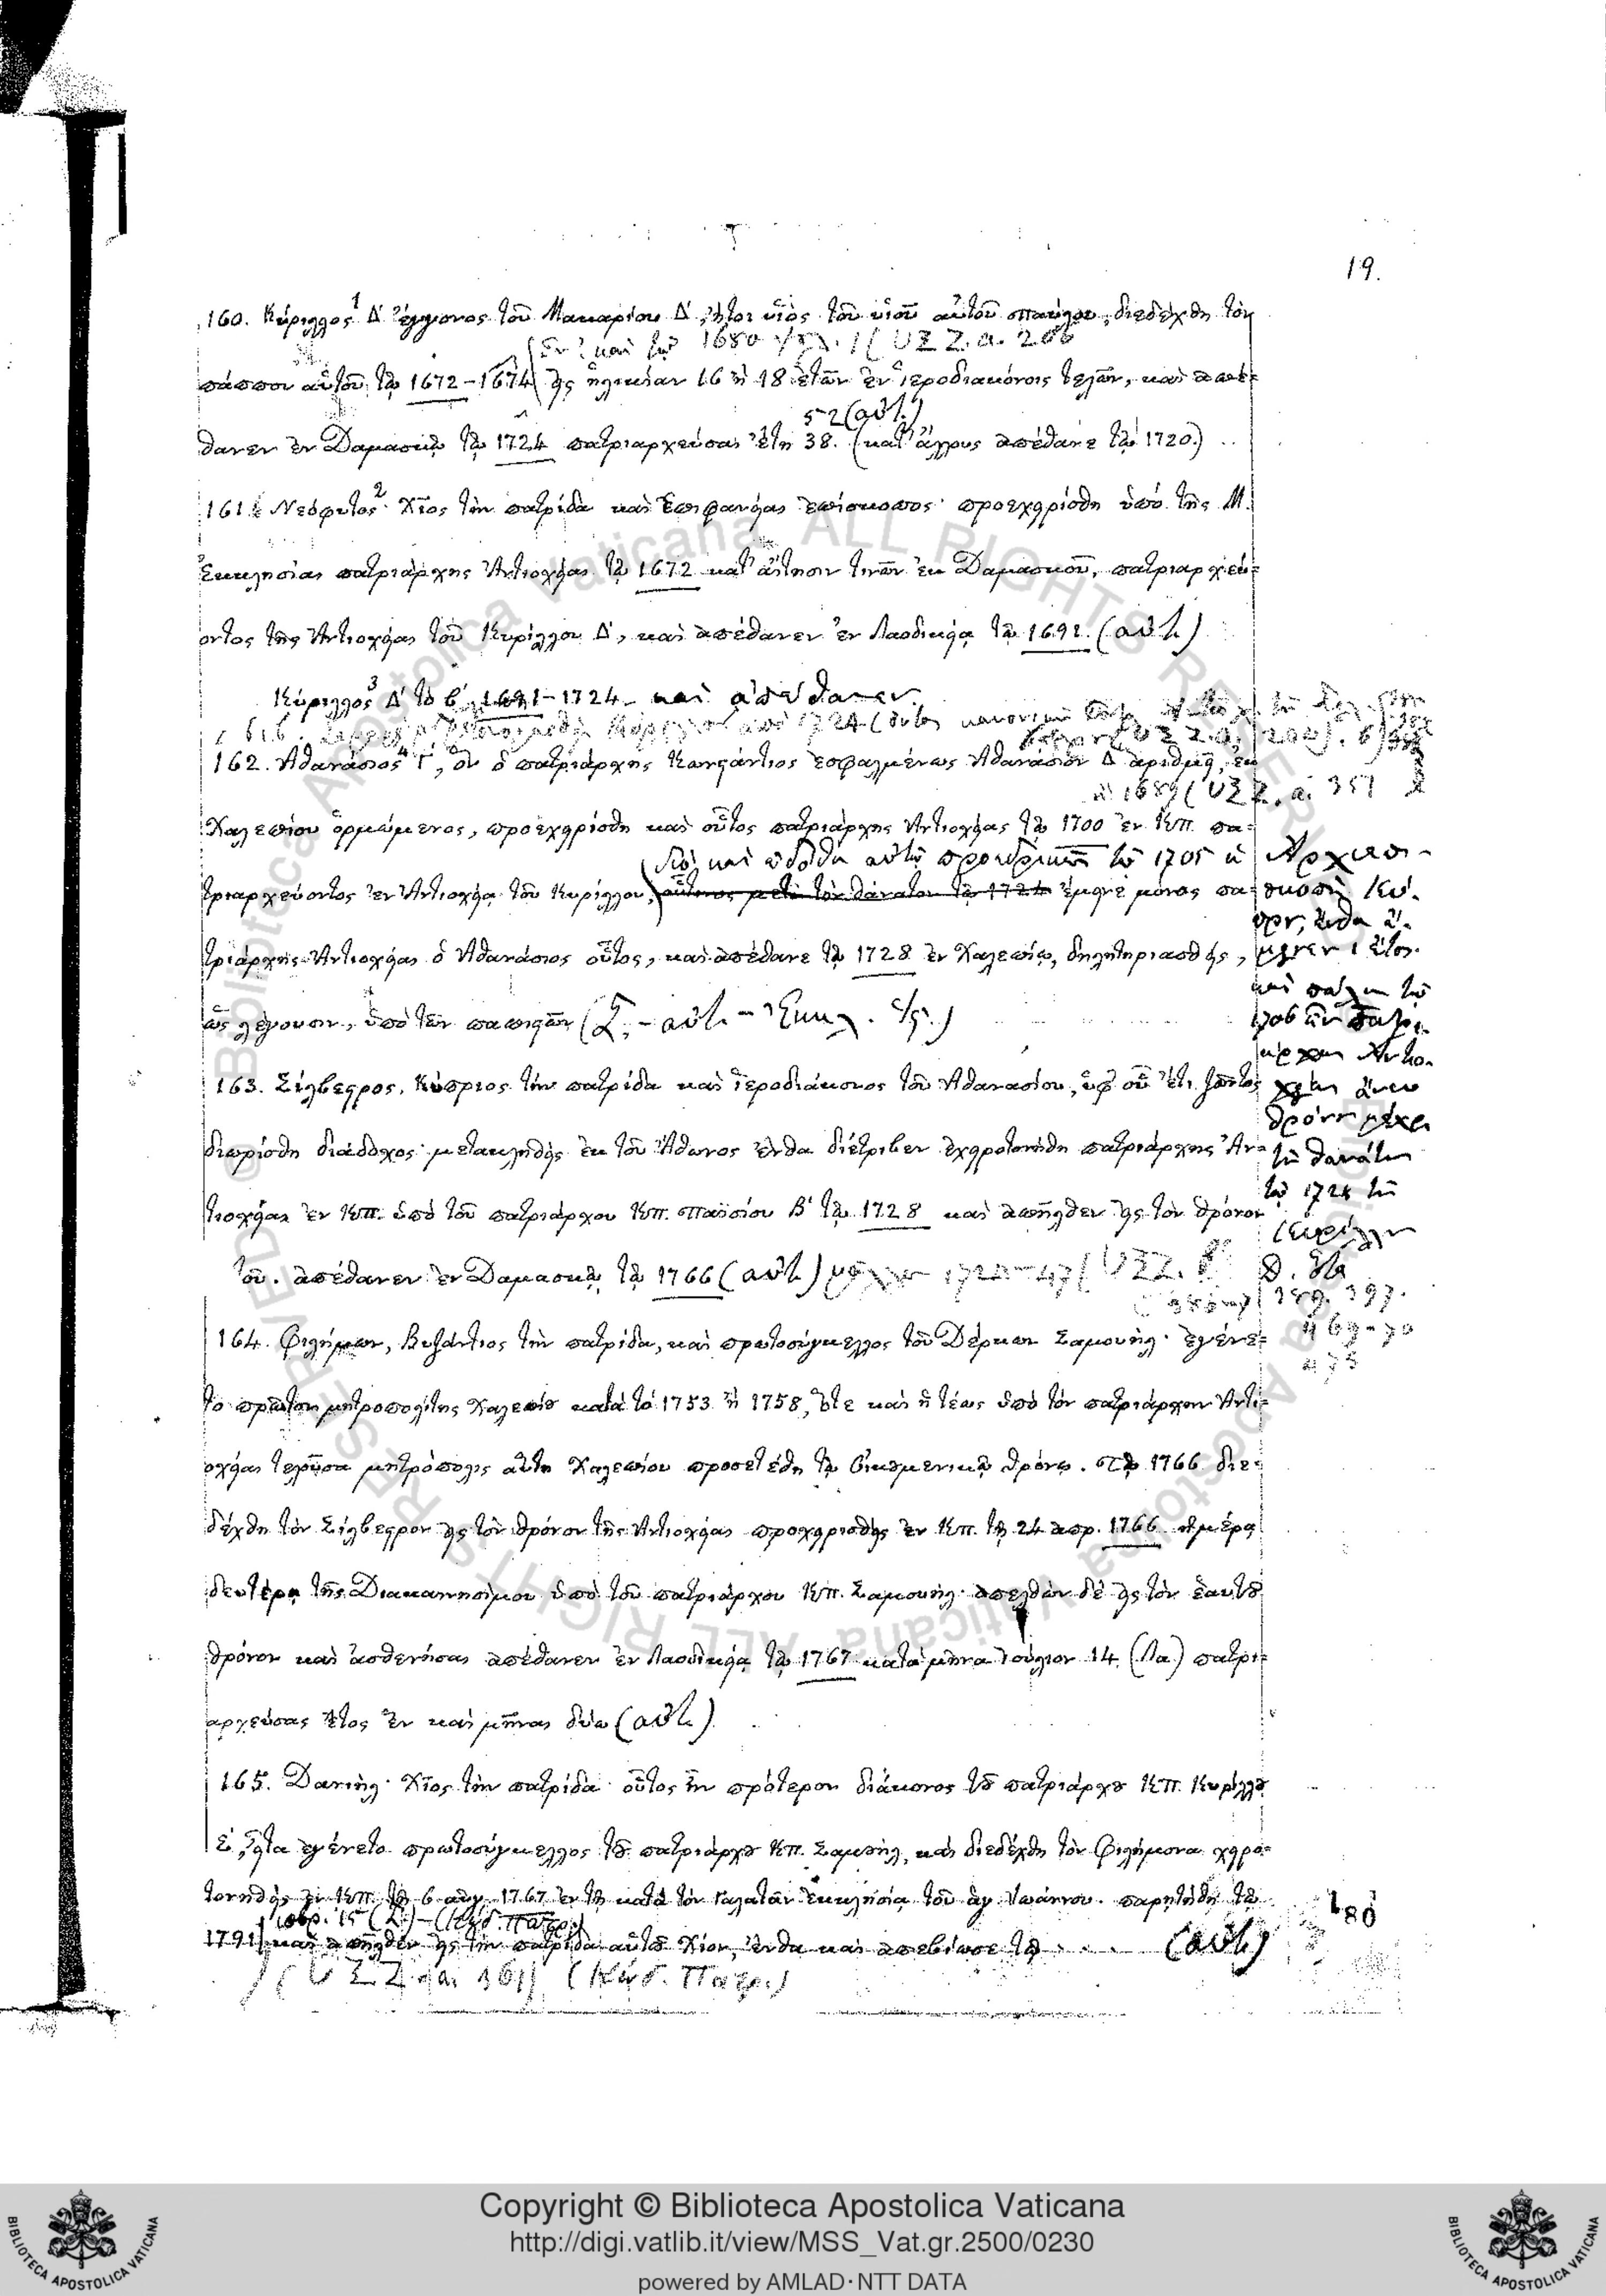 19.
160. Κύριλλος¹ Δ΄ ἔγγονος τοῦ Μακαρίου Δ΄, ἤτοι υἱὸς τοῦ υἱοῦ αὐτοῦ Παύλου, διεδέχθη τὸν
καὶ τῷ 1680
πάππον αὐτοῦ τῷ 1672-1674 εἰς ἡλικίαν 16 ἢ 18 ἐτῶν ἐν ἱεροδιακόνοις τελῶν, καὶ ἀπέ-
52 (αὐτ.)
θανεν ἐν Δαμασκῷ τῷ 1724 πατριαρχεύσας ἔτη 38. (κατ' ἄλλους ἀπέθανε τῷ 1720.)
161. Νεόφυτος² Χῖος τὴν πατρίδα καὶ Ἐπιφανείας ἐπίσκοπος· προεχειρίσθη ὑπὸ τῆς Μ.
Ἐκκλησίας πατριάρχης Ἀντιοχείας τῷ 1672 κατ' αἴτησιν τινῶν ἐκ Δαμασκοῦ, πατριαρχεύ-
οντος τῆς Ἀντιοχείας τοῦ Κυρίλλου Δ΄, καὶ ἀπέθανεν ἐν Λαοδικείᾳ τῷ 1692. (αὐτ.)
Κύριλλος³ Δ΄ τὸ β΄ 1691-1724 καὶ ἀπέθανεν
162. Ἀθανάσιος⁴ Γ΄, ὃν ὁ πατριάρχης Κωνστάντιος ἐσφαλμένως Ἀθανάσιον Δ΄ ἀριθμεῖ, ἐκ
1689
Χαλεπίου ὁρμώμενος, προεχειρίσθη καὶ οὗτος πατριάρχης Ἀντιοχείας τῷ 1700 ἐν Κπ. πα-
διὸ καὶ ἐδόθη αὐτῷ προεδρικῶς τῷ 1705 ἡ Ἀρχιεπι-
τριαρχεύοντος ἐν Ἀντιοχείᾳ τοῦ Κυρίλλου, οὗτινος μετὰ τὸν θάνατον τῷ 1724 ἔμεινε μόνος πα-
σκοπὴ Κύ-
πρου, ἔνθα ἔ-
τριάρχης Ἀντιοχείας ὁ Ἀθανάσιος οὗτος, καὶ ἀπέθανε τῷ 1728 ἐν Χαλεπίῳ, δηλητηριασθείς,
μεινεν 1 ἔτος.
καὶ πάλιν τῷ
ὡς λέγουσιν, ὑπὸ τῶν παπιστῶν (Σ. - αὐτ. - Ἐκκλ.
1706 ἦν πατρι-
άρχης Ἀντιο-
163. Σίλβεστρος, Κύπριος τὴν πατρίδα καὶ ἱεροδιάκονος τοῦ Ἀθανασίου, ὑφ' οὗ ἔτι ζῶντος
χείας ἄνευ
θρόνου μέχρι
διωρίσθη διάδοχος· μετακληθεὶς ἐκ τοῦ Ἄθωνος ἔνθα διέτριβεν ἐχειροτονήθη πατριάρχης Ἀν-
τοῦ θανάτου
τῷ 1724 τοῦ
τιοχείας ἐν Κπ. ὑπὸ τοῦ πατριάρχου Κπ. Παϊσίου Β΄ τῷ 1728 καὶ ἀπῆλθεν εἰς τὸν θρόνον
Κυρίλλου
του. ἀπέθανεν ἐν Δαμασκῷ τῷ 1766 (αὐτ.)
389. 397.
469-70
164. Φιλήμων, Βυζάντιος τὴν πατρίδα, καὶ πρωτοσύγκελλος τοῦ Δέρκων Σαμουήλ· ἐγένε-
το πρῶτον μητροπολίτης Χαλεπίου κατὰ τὸ 1753 ἢ 1758, ὅτε καὶ ἡ τέως ὑπὸ τὸν πατριάρχην Ἀντι-
οχείας τελοῦσα μητρόπολις αὕτη Χαλεπίου προσετέθη τῷ Οἰκουμενικῷ θρόνῳ. τῷ 1766 διε-
δέχθη τὸν Σίλβεστρον εἰς τὸν θρόνον τῆς Ἀντιοχείας προχειρισθεὶς ἐν Κπ. τῇ 24 ἀπρ. 1766 ἡμέρᾳ
δευτέρᾳ τῆς Διακαινησίμου ὑπὸ τοῦ πατριάρχου Κπ. Σαμουήλ· ἀπελθὼν δὲ εἰς τὸν ἑαυτοῦ
θρόνον καὶ ἀσθενήσας ἀπέθανεν ἐν Λαοδικείᾳ τῷ 1767 κατὰ μῆνα Ἰούλιον 14. (Λα.) πατρι-
αρχεύσας ἔτος ἓν καὶ μῆνας δύω (αὐτ.)
165. Δανιήλ· Χῖος τὴν πατρίδα· οὗτος ἦν πρότερον διάκονος τοῦ πατριάρχου Κπ. Κυρίλλου
Ε΄, εἶτα ἐγένετο πρωτοσύγκελλος τοῦ πατριάρχου Κπ. Σαμουήλ, καὶ διεδέχθη τὸν Φιλήμονα χειρο-
τονηθεὶς ἐν Κπ. τῇ 6 αὐγ. 1767 ἐν τῇ κατὰ τὸν Γαλατᾶν ἐκκλησίᾳ τοῦ ἁγ. Ἰωάννου. παρῃτήθη τῷ
15 (Σ.) - (Κώδ. Πατρ.)
1791 καὶ ἀπῆλθεν εἰς τὴν πατρίδα αὐτοῦ Χίον, ἔνθα καὶ ἀπεβίωσε τῷ . . . (αὐτ.)
361) (Κώδ. Πατρ.)
Copyright © Biblioteca Apostolica Vaticana
http://digi.vatlib.it/view/MSS_Vat.gr.2500/0230
powered by AMLAD·NTT DATA
BIBLIOTECA APOSTOLICA VATICANA
BIBLIOTECA APOSTOLICA VATICANA
© Biblioteca Apostolica Vaticana, ALL RIGHTS RESERVED